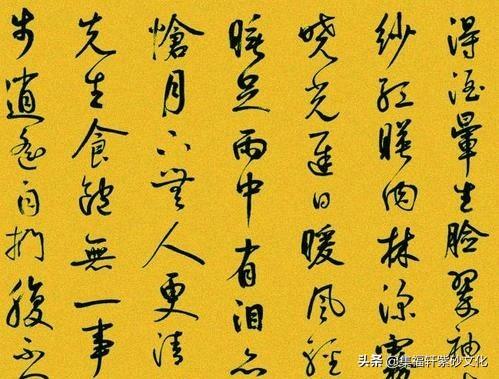 得酒暈生臉翠袖
紗紅映肉林深霧
曉光遲日暖風輕
睡足雨中有淚亦
愴月下無人更清
先生食飽無一事
步逍遙自捫腹不
头条@集福轩紫砂文化